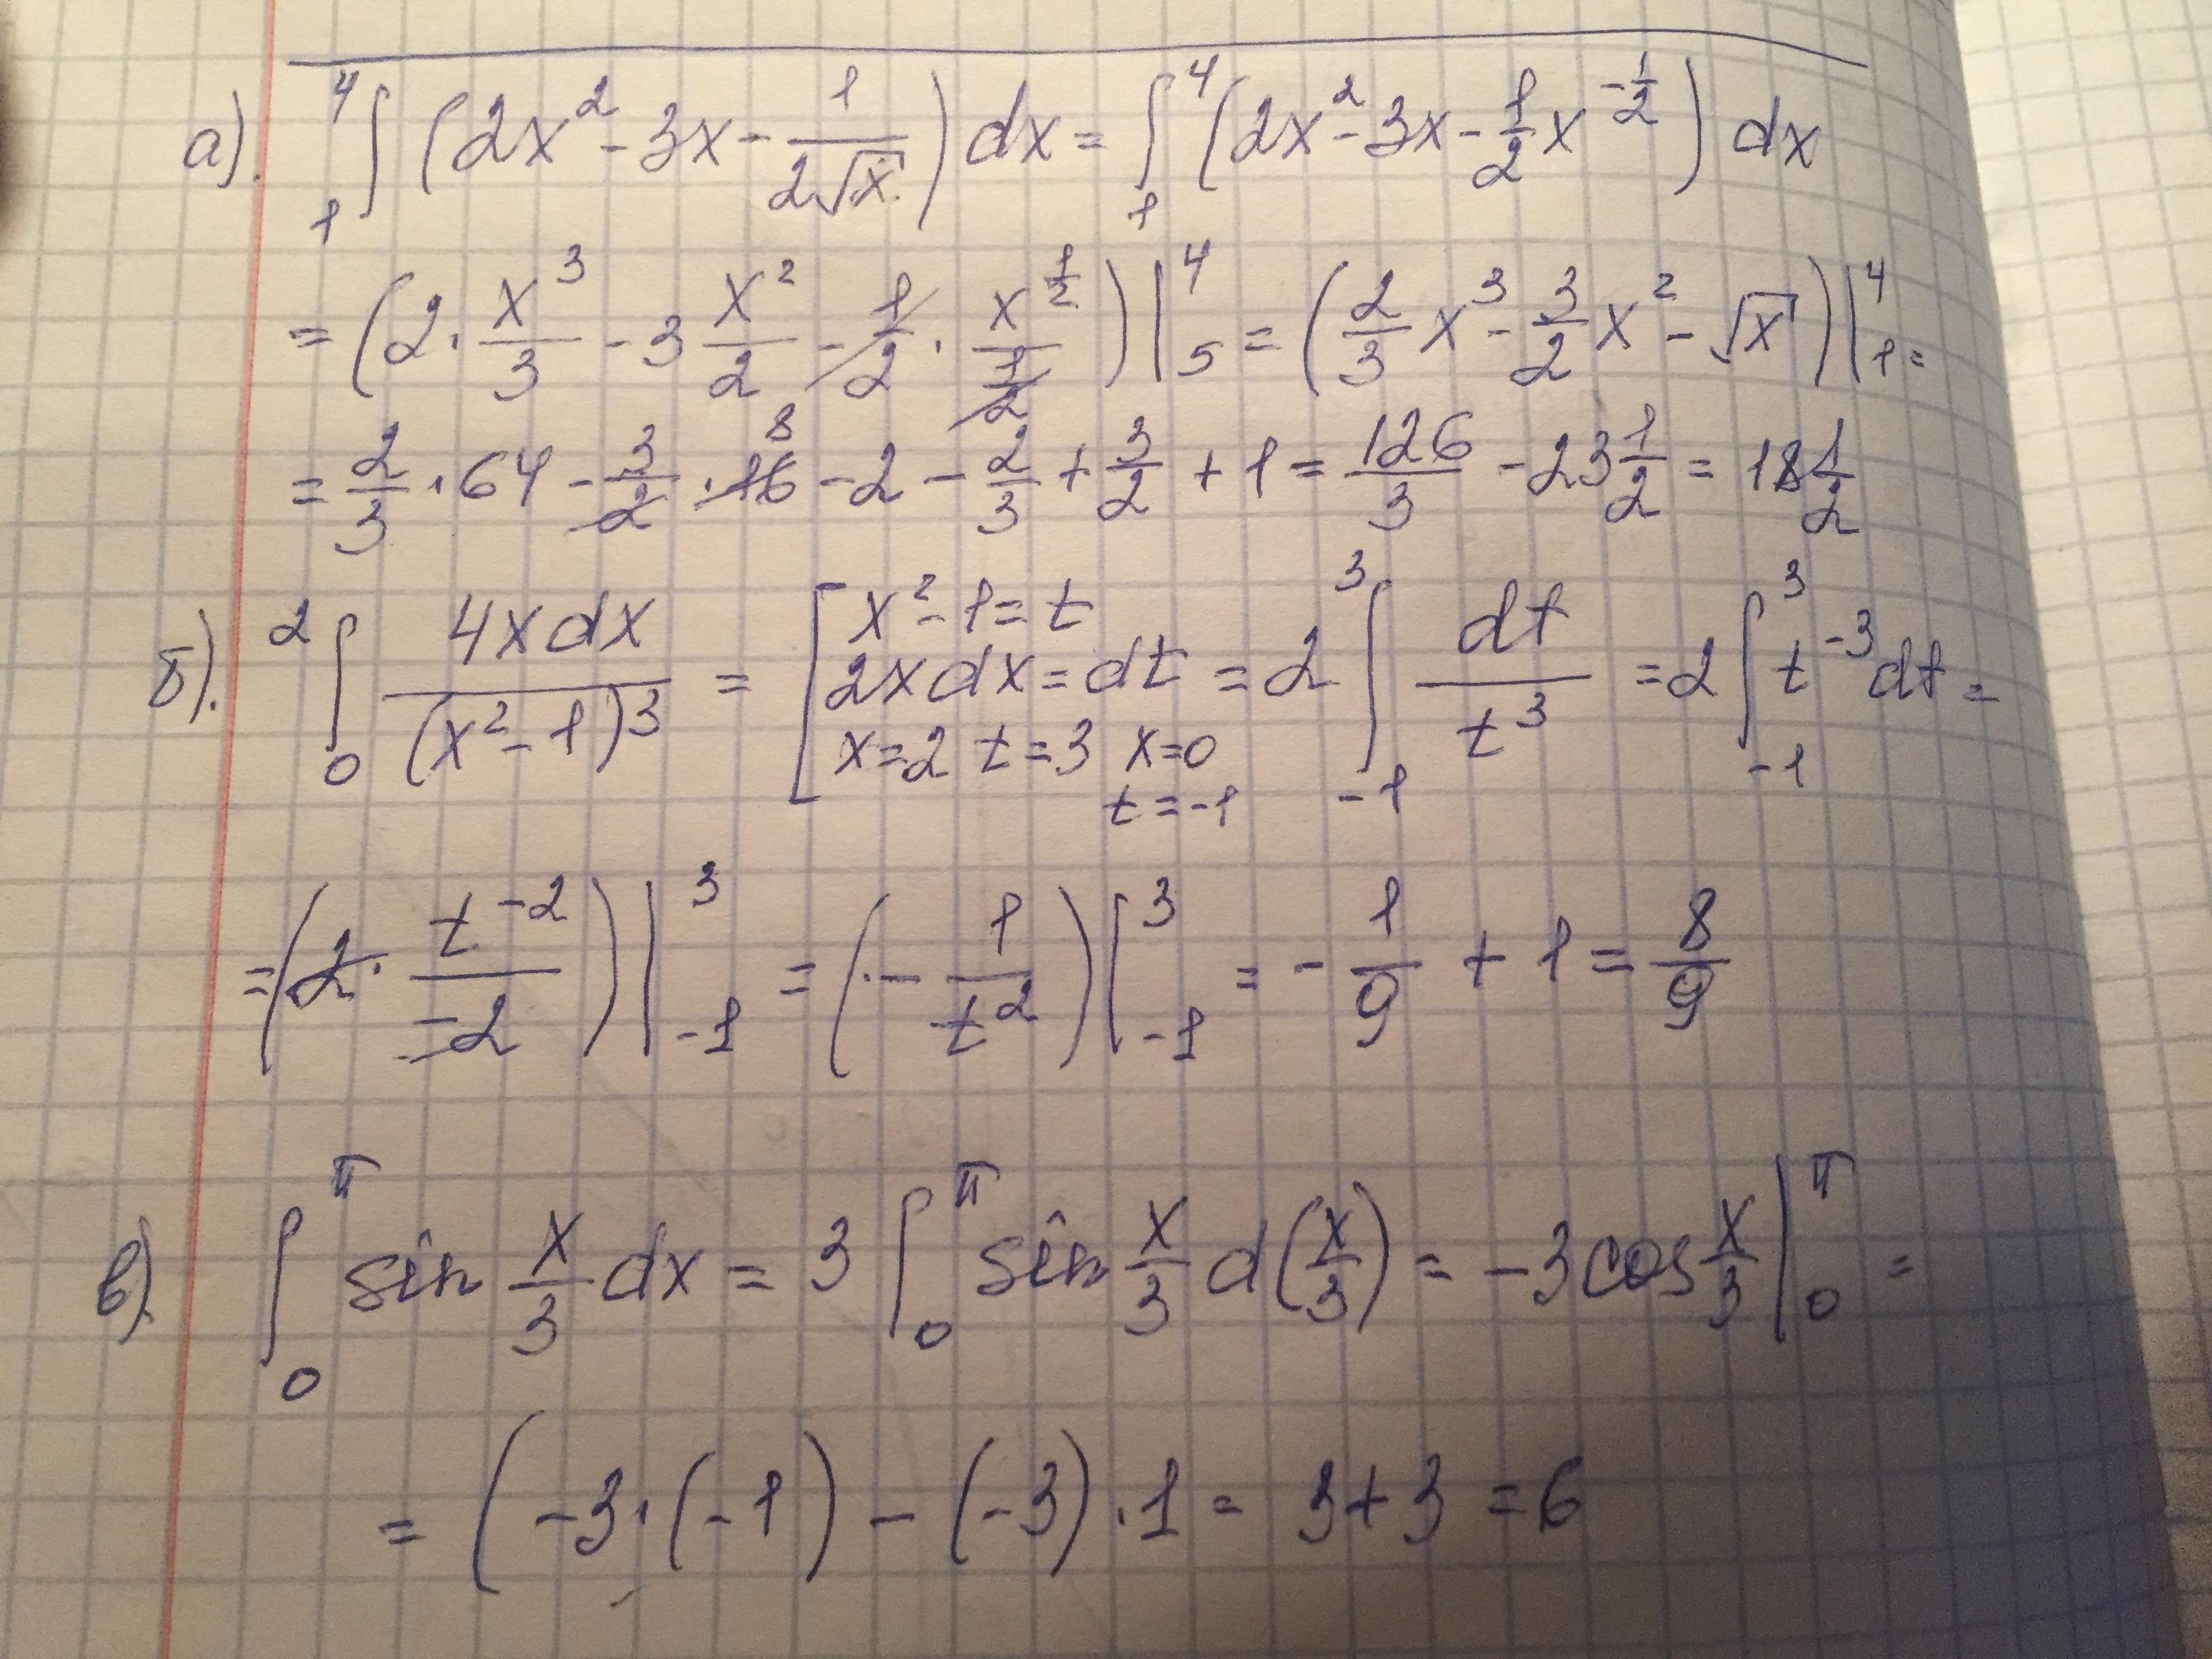 а). ₁⁴∫ (2x² - 3x - 1/(2√x)) dx = ∫₁⁴ (2x² - 3x - 1/2 x^(-1/2)) dx
= (2 · x³/3 - 3 x²/2 - 1/2 · x^(1/2)/(1/2)) |₅⁴ = (2/3 x³ - 3/2 x² - √x) |₁⁴ =
= 2/3 · 64 - 3/2 · 16 8 - 2 - 2/3 + 3/2 + 1 = 126/3 - 23 1/2 = 18 1/2
б). ₀²∫ 4x dx/(x² - 1)³ = [x² - 1 = t 2x dx = dt x = 2 t = 3 x = 0 t = -1 = 2 ∫₋₁³ dt/t³ = 2 ∫₋₁³ t⁻³ dt =
= (2 · t⁻²/-2) |₋₁³ = (- 1/t²) |₋₁³ = - 1/9 + 1 = 8/9
в). ∫₀^π sin x/3 dx = 3 ∫₀^π sin x/3 d(x/3) = -3 cos x/3 |₀^π =
= (-3 · (-1) - (-3) · 1 = 3 + 3 = 6